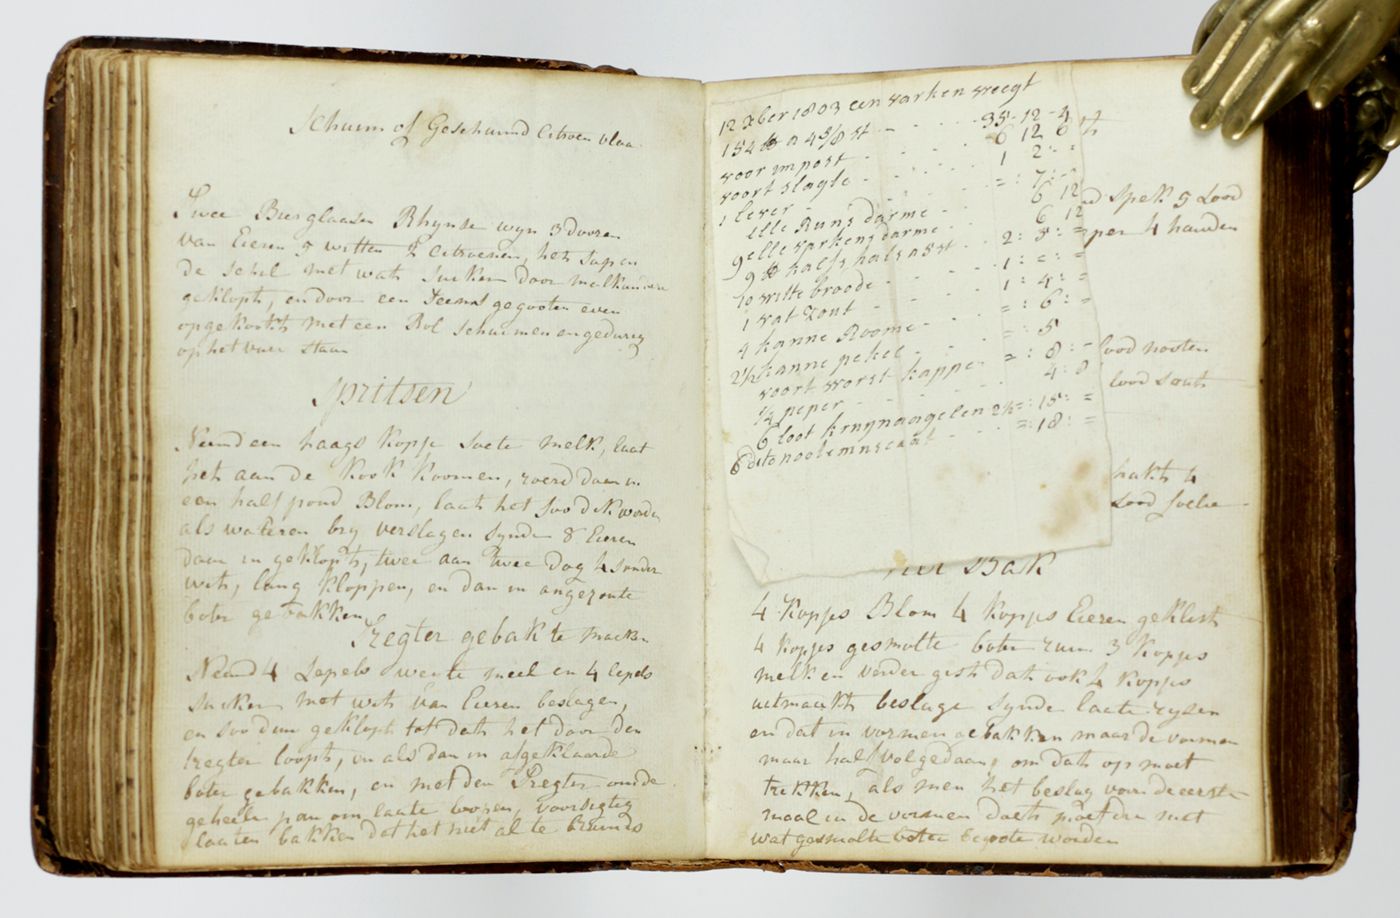 Schuim of Geschuimd Citroen vlaa
Twee Bierglaasen Rhynse wyn 3 dooren
van Eieren 5 witten 2 Citroenen, het sap en
de schil met wat suiker door malkander
geklopt, en door een Teems gegooten even
opgekookt met een Rol schuimen en gedurig
op het vuur staan
Spritsen
Neemd een haags kopje soete melk, laat
het aan de kook koomen, roerd daar in
een half pond Blom, laat het soo dik worden
als wateren bry verslagen synde 8 Eieren
daar in geklopt, twee aan twee dog 4 sonder
wit, lang kloppen, en dan in angezoute
boter gebakken
Tregter gebak te maeken
Neemd 4 Lepels weite meel en 4 lepels
suiker met wit van Eieren beslagen,
en soo dun geklopt tot dat het door den
tregter loopt, en als dan in afgeklaarde
boter gebakken, en met den Tregter om de
geheele pan om laate loopen, voorsigtig
laaten bakken dat het niet al te bruin is
12 xber 1803 een varken weegt
154 ℔ a 4 5/8 st - - - 35-12-4
voor impost - - - 6 12 6
voort slagte - - - 1 2 - -
1 lever - - - = : 7 : -
elle Runs darme - - - 6 12
9 elle varkens darme - - - 6 12
9 ℔ kalfs halsasst - - 2 : 5 : =
10 witte broode - - - 1 : = : =
1 vat zout - - - 1 : 4 : =
4 kanne Roome - - - = : 6 : =
2½ kanne pekel - - - = : 5
voort worst kappe - - = : 8 : -
¼ peper - - - 4 : 8
6 loot kruynangelen 2½ = : 15 : =
6 dito noote muscaat - - = : 18 : =
nd Spek 5 Lood
per 4 handen
lood nooten
lood Sout
hakt 4
Lood Soelie
Bak
4 Kopjes Blom 4 kopjes Eieren geklist
4 kopjes gesmolte boter ruim 3 kopjes
melk en verder gist dat ook 4 kopjes
uitmaakt beslage synde laate rysen
en dat in vormen gebakken maar de vormen
maar half vol gedaan, om dat op moet
trekken, als men het beslag voor de eerste
maal in de vormen doet moeten met
wat gesmolte boter begoote worden